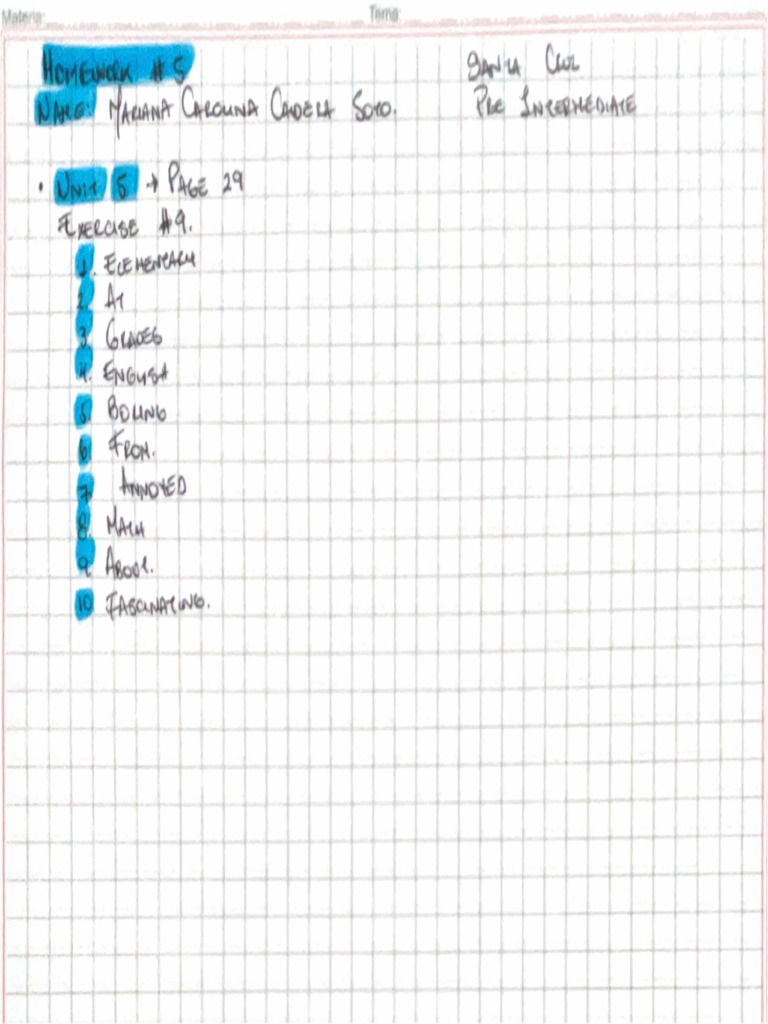 Materia: Tema:
HOMEWORK # 5 SANTA CRUZ
NAME: MARIANA CAROLINA CANDELA SOTO. PRE INTERMEDIATE
• UNIT 5 → PAGE 29
EXERCISE #9.
1. ELEMENTARY
2. AT
3. GRADES
4. ENGLISH
5. BORING
6. FROM.
7. ANNOYED
8. MATH
9. ABOUT.
10 FASCINATING.